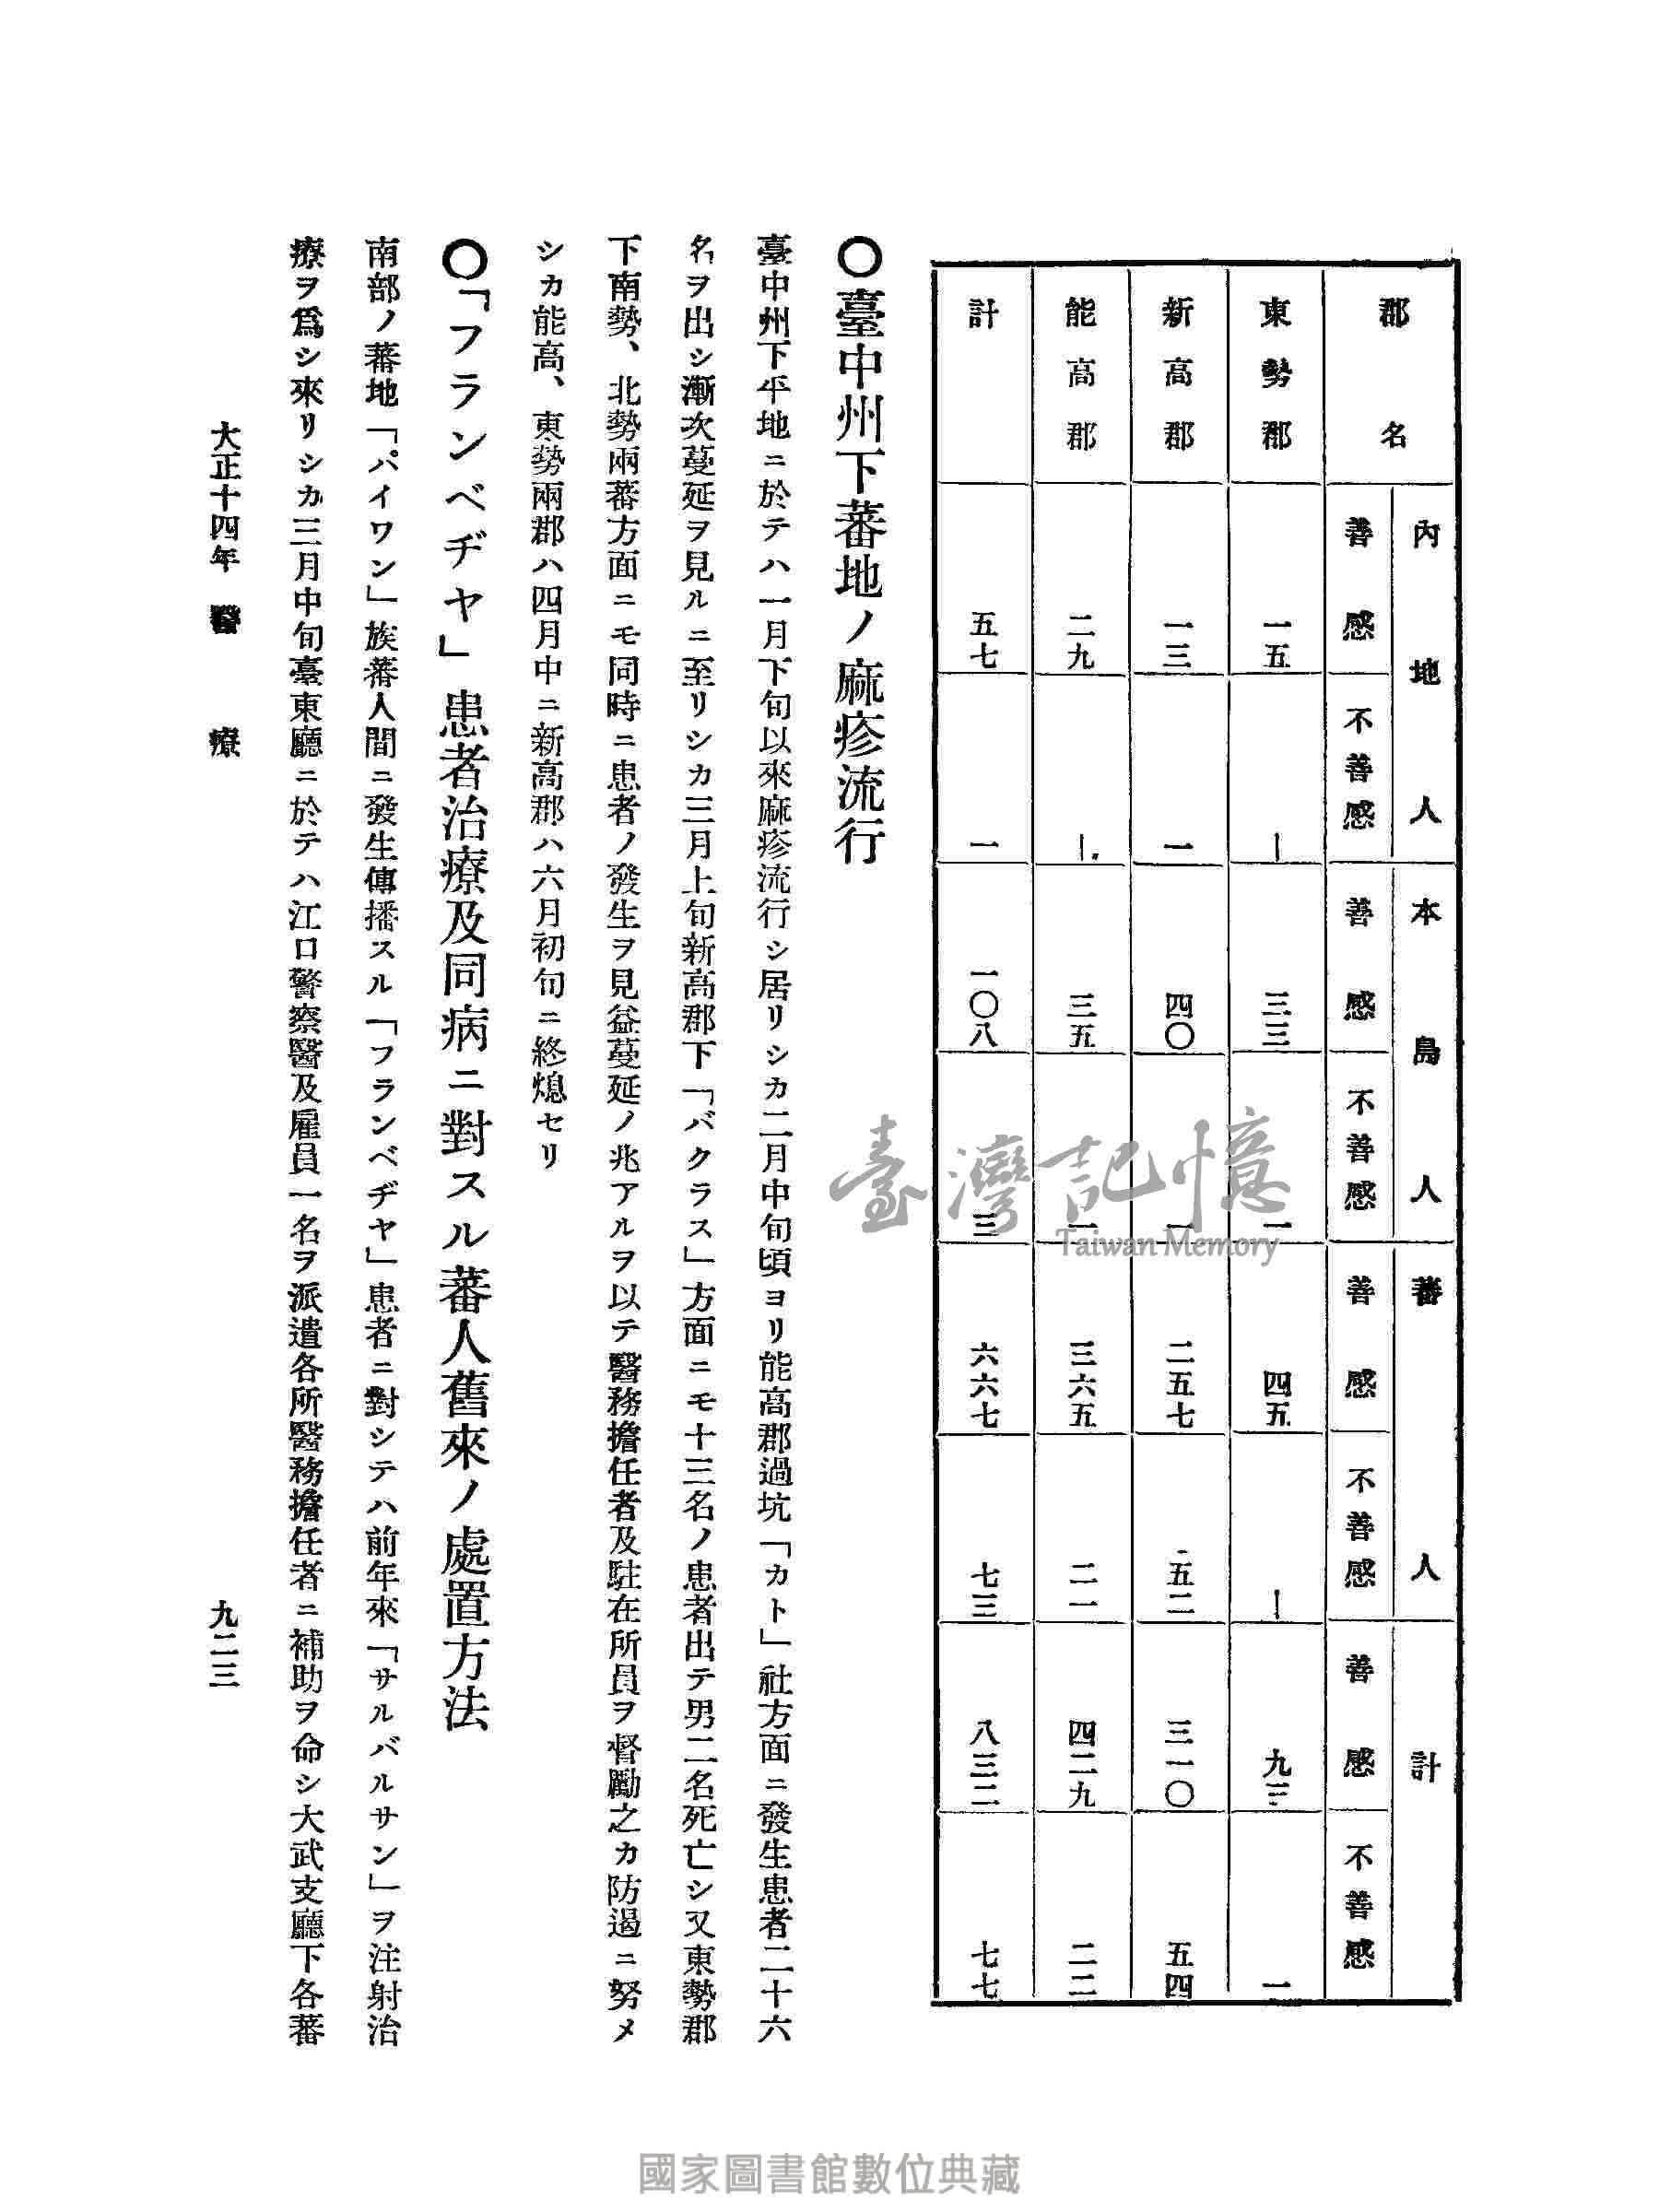 郡名
內地人
善感
不善感
本島人
善感
不善感
蕃人
善感
不善感
計
善感
不善感
東勢郡
一五
—
三三
一
四五
—
九三
一
新高郡
一三
一
四〇
一
二五七
五二
三一〇
五四
能高郡
二九
—
三五
一
三六五
二一
四二九
二二
計
五七
一
一〇八
三
六六七
七三
八三二
七七
〇臺中州下蕃地ノ麻疹流行
臺中州下平地ニ於テハ一月下旬以來麻疹流行シ居リシカ二月中旬頃ヨリ能高郡過坑「カト」社方面ニ發生患者二十六
名ヲ出シ漸次蔓延ヲ見ルニ至リシカ三月上旬新高郡下「バクラス」方面ニモ十三名ノ患者出テ男二名死亡シ又東勢郡
下南勢、北勢兩蕃方面ニモ同時ニ患者ノ發生ヲ見益蔓延ノ兆アルヲ以テ醫務擔任者及駐在所員ヲ督勵之カ防遏ニ努メ
シカ能高、東勢兩郡ハ四月中ニ新高郡ハ六月初旬ニ終熄セリ
〇「フランベヂヤ」患者治療及同病ニ對スル蕃人舊來ノ處置方法
南部ノ蕃地「パイワン」族蕃人間ニ發生傳播スル「フランベヂヤ」患者ニ對シテハ前年來「サルバルサン」ヲ注射治
療ヲ爲シ來リシカ三月中旬臺東廳ニ於テハ江口警察醫及雇員一名ヲ派遣各所醫務擔任者ニ補助ヲ命シ大武支廳下各蕃
大正十四年 醫療
九二三
臺灣記憶
Taiwan Memory
國家圖書館數位典藏